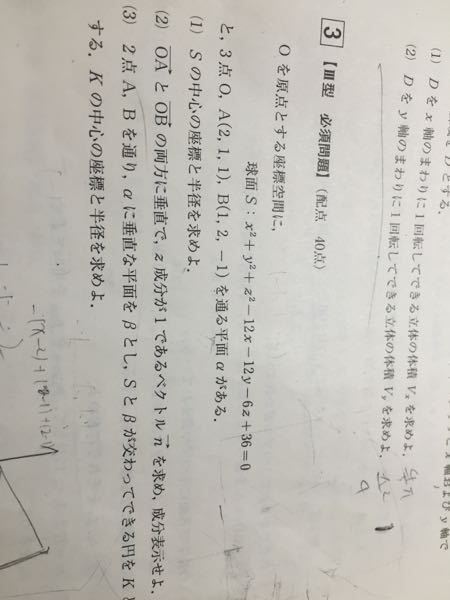 (1) D を x 軸のまわりに1回転してできる立体の体積 Vx を求めよ.
(2) D を y 軸のまわりに1回転してできる立体の体積 Vy を求めよ.
3 【Ⅲ型 必須問題】(配点 40点)
O を原点とする座標空間に,
球面 S : x²+y²+z²−12x−12y−6z+36=0
と, 3点 O, A(2, 1, 1), B(1, 2, −1) を通る平面 α がある.
(1) S の中心の座標と半径を求めよ.
(2) OA と OB の両方に垂直で, z 成分が1であるベクトル n を求め, 成分表示せよ.
(3) 2点 A, B を通り, α に垂直な平面を β とし, S と β が交わってできる円を K と
する. K の中心の座標と半径を求めよ.